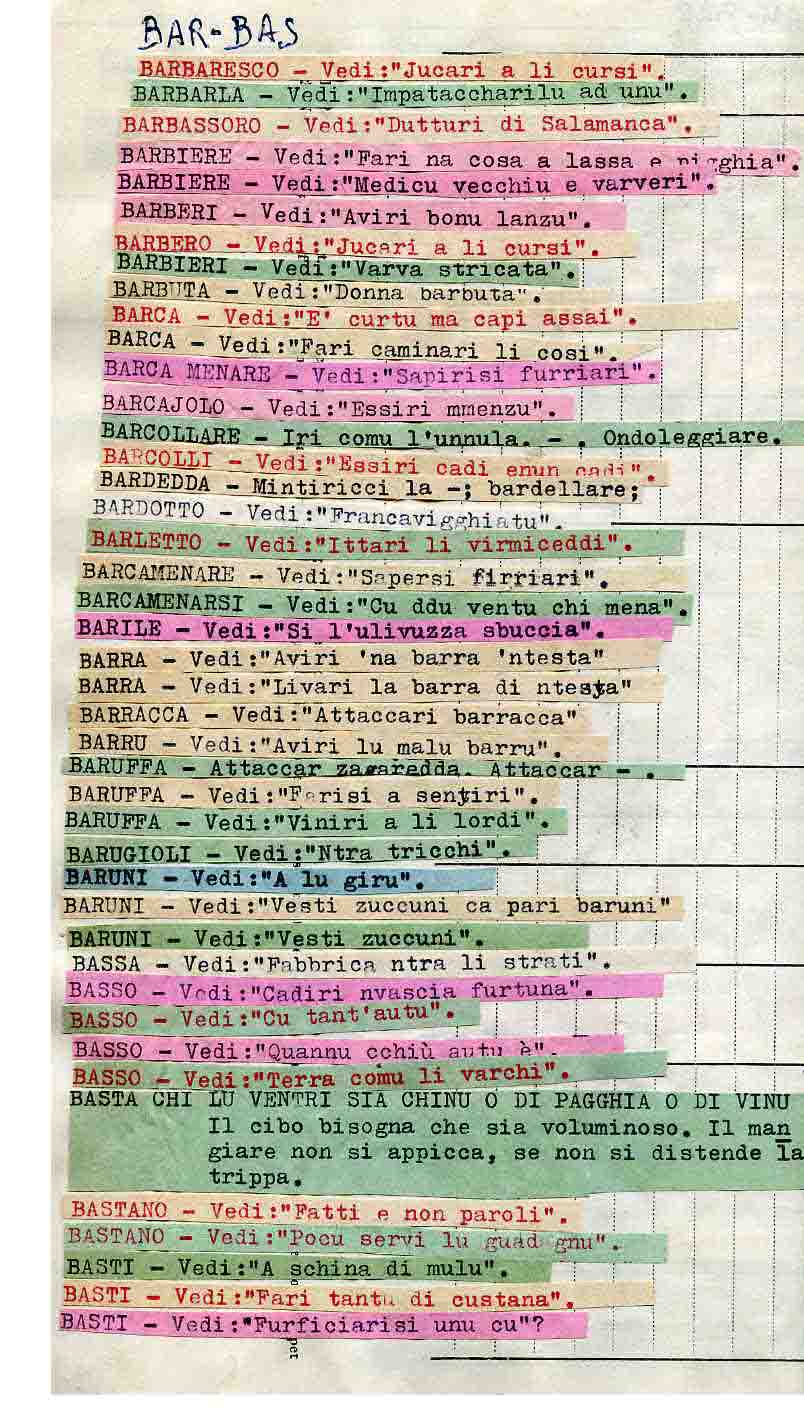 BAR-BAS
BARBARESCO - Vedi:"Jucari a li cursi".
BARBARLA - Vedi:"Impataccharilu ad unu".
BARBASSORO - Vedi:"Dutturi di Salamanca".
BARBIERE - Vedi:"Fari na cosa a lassa e pigghia".
BARBIERE - Vedi:"Medicu vecchiu e varveri".
BARBERI - Vedi:"Aviri bonu lanzu".
BARBERO - Vedi:"Jucari a li cursi".
BARBIERI - Vedi:"Varva stricata".
BARBUTA - Vedi:"Donna barbuta".
BARCA - Vedi:"E' curtu ma capi assai".
BARCA - Vedi:"Fari caminari li cosi".
BARCA MENARE - Vedi:"Sapirisi furriari".
BARCAJOLO - Vedi:"Essiri mmenzu".
BARCOLLARE - Iri comu l'unnula. - . Ondoleggiare.
BARCOLLI - Vedi:"Essiri cadi enun cadi".
BARDEDDA - Mintiricci la -; bardellare;
BARDOTTO - Vedi:"Francavigghiatu".
BARLETTO - Vedi:"Ittari li virmiceddi".
BARCAMENARE - Vedi:"Sapersi firriari".
BARCAMENARSI - Vedi:"Cu ddu ventu chi mena".
BARILE - Vedi:"Si l'ulivuzza sbuccia".
BARRA - Vedi:"Aviri 'na barra 'ntesta"
BARRA - Vedi:"Livari la barra di ntesta"
BARRACCA - Vedi:"Attaccari barracca"
BARRU - Vedi:"Aviri lu malu barru".
BARUFFA - Attaccar zagaredda. Attaccar - .
BARUFFA - Vedi:"Farisi a sentiri".
BARUFFA - Vedi:"Viniri a li lordi".
BARUGIOLI - Vedi:"Ntra tricchi".
BARUNI - Vedi:"A lu giru".
BARUNI - Vedi:"Vesti zuccuni ca pari baruni"
BARUNI - Vedi:"Vesti zuccuni".
BASSA - Vedi:"Fabbrica ntra li strati".
BASSO - Vedi:"Cadiri nvascia furtuna".
BASSO - Vedi:"Cu tant'autu".
BASSO - Vedi:"Quannu cchiù autu è".
BASSO - Vedi:"Terra comu li varchi".
BASTA CHI LU VENTRI SIA CHINU O DI PAGGHIA O DI VINU
Il cibo bisogna che sia voluminoso. Il man
giare non si appicca, se non si distende la
trippa.
BASTANO - Vedi:"Fatti e non paroli".
BASTANO - Vedi:"Pocu servi lu guadagnu".
BASTI - Vedi:"A schina di mulu".
BASTI - Vedi:"Fari tantu di custana".
BASTI - Vedi:"Furficiarisi unu cu"?
pet